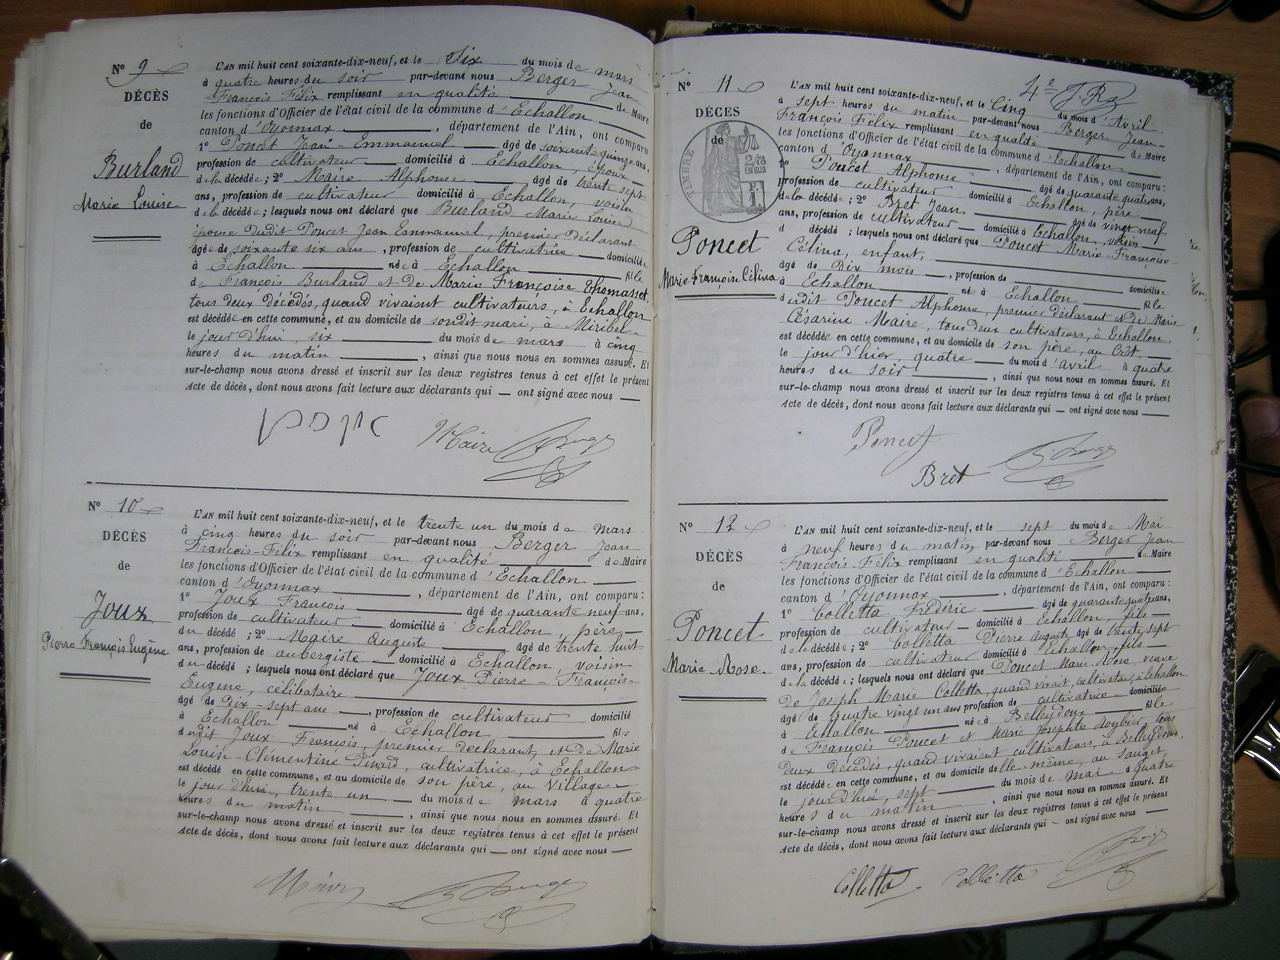 N° 9
DÉCÈS
de
Burland
Marie Louise
L'AN mil huit cent soixante-dix-neuf, et le Six du mois de mars
à quatre heures du soir par-devant nous Berger Jean
François Félix remplissant en qualité de Maire
les fonctions d'Officier de l'état civil de la commune d'Echallon
canton d'Oyonnax, département de l'Ain, ont comparu
1° Poncet Jean-Emmanuel âgé de soixante quinze ans,
profession de cultivateur domicilié à Echallon, époux
de la décédée; 2° Maire Alphonse âgé de trente sept
ans, profession de cultivateur domicilié à Echallon, voisin
de la décédée; lesquels nous ont déclaré que Burland Marie Louise
épouse dudit Poncet Jean Emmanuel, premier déclarant
âgée de soixante six ans, profession de cultivatrice domiciliée
à Echallon née à Echallon fille
de François Burland et de Marie Françoise Thomasset,
tous deux décédés, quand vivaient cultivateurs, à Echallon
est décédée en cette commune, et au domicile de sondit mari, à Miribel
le jour d'hui, six du mois de mars à cinq
heures du matin, ainsi que nous nous en sommes assuré. Et
sur-le-champ nous avons dressé et inscrit sur les deux registres tenus à cet effet le présent
Acte de décès, dont nous avons fait lecture aux déclarants qui — ont signé avec nous —
Maire Berger
N° 10
DÉCÈS
de
Joux
Pierre François Eugène
L'AN mil huit cent soixante-dix-neuf, et le trente un du mois de mars
à cinq heures du soir par-devant nous Berger Jean
François-Félix remplissant en qualité de Maire
les fonctions d'Officier de l'état civil de la commune d'Echallon
canton d'Oyonnax, département de l'Ain, ont comparu:
1° Joux François âgé de quarante neuf ans,
profession de cultivateur domicilié à Echallon, père
du décédé; 2° Maire Auguste âgé de trente huit
ans, profession de aubergiste domicilié à Echallon, voisin
du décédé; lesquels nous ont déclaré que Joux Pierre-François-
Eugène, célibataire
âgé de Dix-sept ans, profession de cultivateur domicilié
à Echallon né à Echallon fils
dudit Joux François, premier déclarant, et de Marie
Louise-Clémentine, cultivatrice, à Echallon
est décédé en cette commune, et au domicile de son père, au village
le jour d'hui, trente un du mois de mars à quatre
heures du matin, ainsi que nous nous en sommes assuré. Et
sur-le-champ nous avons dressé et inscrit sur les deux registres tenus à cet effet le présent
Acte de décès, dont nous avons fait lecture aux déclarants qui — ont signé avec nous —
Berger
4e
N° 11
DÉCÈS
de
TIMBRE
Poncet
Marie Françoise Célina
L'AN mil huit cent soixante-dix-neuf, et le Cinq du mois d'Avril
à sept heures du matin par-devant nous Berger Jean-
François Félix remplissant en qualité de Maire
les fonctions d'Officier de l'état civil de la commune d'Echallon
canton d'Oyonnax, département de l'Ain, ont comparu:
1° Poncet Alphonse âgé de quarante quatre ans,
profession de cultivateur domicilié à Echallon, père
de la décédée; 2° Bret Jean âgé de vingt neuf
ans, profession de cultivateur domicilié à Echallon, voisin
d décédé; lesquels nous ont déclaré que Poncet Marie Françoise
Célina, enfant,
âgé de Dix mois, profession de domicilié
à Echallon né à Echallon fille
dudit Poncet Alphonse, premier déclarant et de Marie
Césarine Maire, tous deux cultivateurs, à Echallon
est décédée en cette commune, et au domicile de son père, au Crêt
le jour d'hier, quatre du mois d'avril à quatre
heures du soir, ainsi que nous nous en sommes assuré. Et
sur-le-champ nous avons dressé et inscrit sur les deux registres tenus à cet effet le présent
Acte de décès, dont nous avons fait lecture aux déclarants qui — ont signé avec nous —
Poncet
Bret Berger
N° 12
DÉCÈS
de
Poncet
Marie Rose
L'AN mil huit cent soixante-dix-neuf, et le sept du mois de Mai
à neuf heures du matin par-devant nous Berger Jean
François-Félix remplissant en qualité de Maire
les fonctions d'Officier de l'état civil de la commune d'Echallon
canton d'Oyonnax, département de l'Ain, ont comparu:
1° Colletta Frédéric âgé de quarante ans,
profession de cultivateur domicilié à Echallon fils
de la décédée; 2° Colletta Pierre Auguste âgé de trente sept
ans, profession de cultivateur domicilié à Echallon, fils
de la décédée; lesquels nous ont déclaré que Poncet Marie Rose, veuve
de Joseph Marie Colletta, quand vivait, cultivateur, à Echallon
âgée de quatre vingt un ans profession de cultivatrice domiciliée
à Echallon née à Belleydoux fille
de François Poncet et Marie Josephte, tous
deux décédés, quand vivaient cultivateurs, à Belleydoux
est décédée en cette commune, et au domicile d'elle-même, au
le jour d'hui, sept du mois de mai à quatre
heures du matin, ainsi que nous nous en sommes assuré. Et
sur-le-champ nous avons dressé et inscrit sur les deux registres tenus à cet effet le présent
Acte de décès, dont nous avons fait lecture aux déclarants qui — ont signé avec nous —
Colletta Colletta Berger